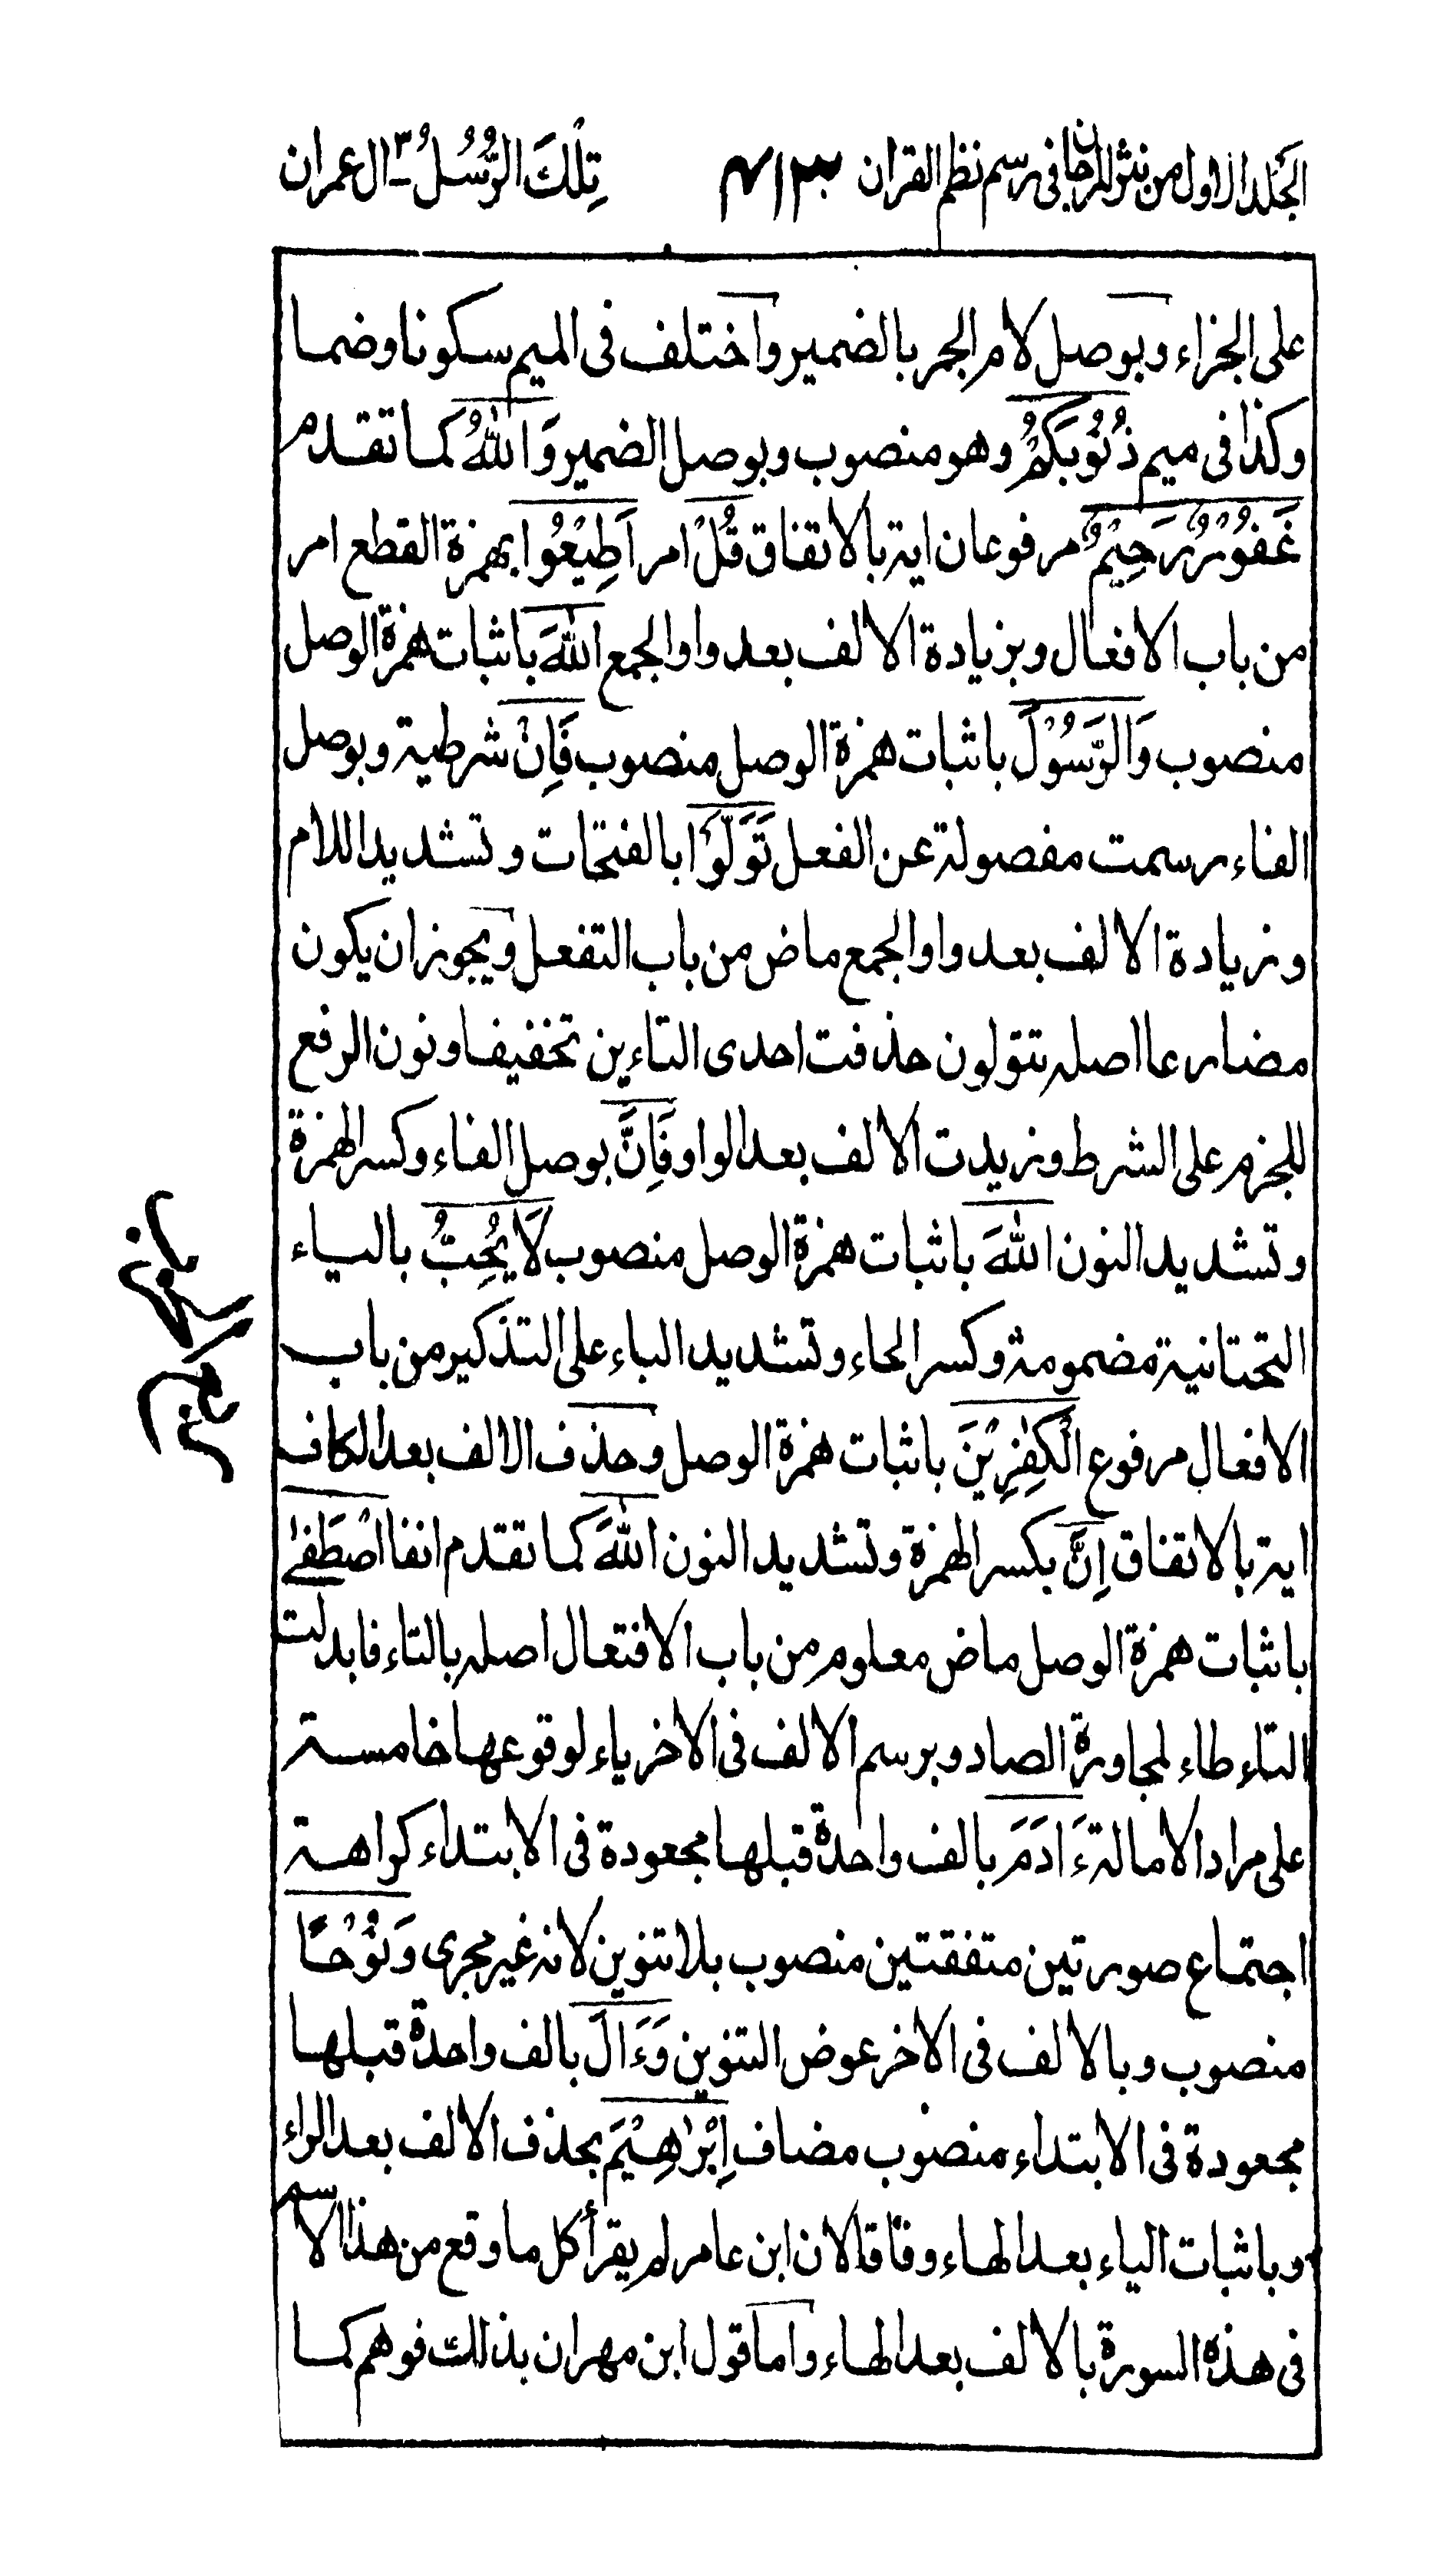 الجلد الاول من نثر المرجان فى رسم نظم القران ٤١٣ تِلْكَ الرُّسُلُ ٣ ال عمران
على الجزاء وبوصل لام الجر بالضمير واختلف فى الميم سكونا وضما
وكذا فى ميم ذُنُوْبَكُمْ وهو منصوب وبوصل الضمير وَاللّٰهُ كما تقدم
غَفُوْرٌ رَّحِيْمٌ مرفوعان اية بالاتفاق قُلْ امر اَطِيْعُوا بهمزة القطع امر
من باب الافعال وبزيادة الالف بعد واو الجمع اللّٰهَ باثبات همزة الوصل
منصوب وَالرَّسُوْلَ باثبات همزة الوصل منصوب فَاِنْ شرطية وبوصل
الفاء رسمت مفصولة عن الفعل تَوَلَّوْا بالفتحات وتشديد اللام
وزيادة الالف بعد واو الجمع ماض من باب التفعل ويجوز ان يكون
مضارعا اصله تتولون حذفت احدى التاءين تخفيفا ونون الرفع
للجزم على الشرط وزيدت الالف بعد الواو فَاِنَّ بوصل الفاء وكسر الهمزة
وتشديد النون اللّٰهَ باثبات همزة الوصل منصوب لَا يُحِبُّ بالياء
التحتانية مضمومة وكسر الحاء وتشديد الباء على التذكير من باب
الافعال مرفوع الْكٰفِرِيْنَ باثبات همزة الوصل وحذف الالف بعد الكاف
اية بالاتفاق اِنَّ بكسر الهمزة وتشديد النون اللّٰهَ كما تقدم انفا اصْطَفٰى
باثبات همزة الوصل ماض معلوم من باب الافتعال اصله بالتاء فابدلت
التاء طاء لمجاورة الصاد وبرسم الالف فى الاخر ياء لوقوعها خامسة
على مراد الامالة ءَادَمَ بالف واحدة قبلها مجعودة فى الابتداء كراهة
اجتماع صورتين متفقتين منصوب بلا تنوين لانه غير مجرى وَنُوْحًا
منصوب وبالالف فى الاخر عوض التنوين وَءَالَ بالف واحدة قبلها
مجعودة فى الابتداء منصوب مضاف اِبْرٰهِيْمَ بحذف الالف بعد الراء
وباثبات الياء بعد الهاء وفاقا لان ابن عامر لم يقرأ كل ما وقع من هذا الاسم
فى هذه السورة بالالف بعد الهاء واما قول ابن مهران بذلك فوهم كما